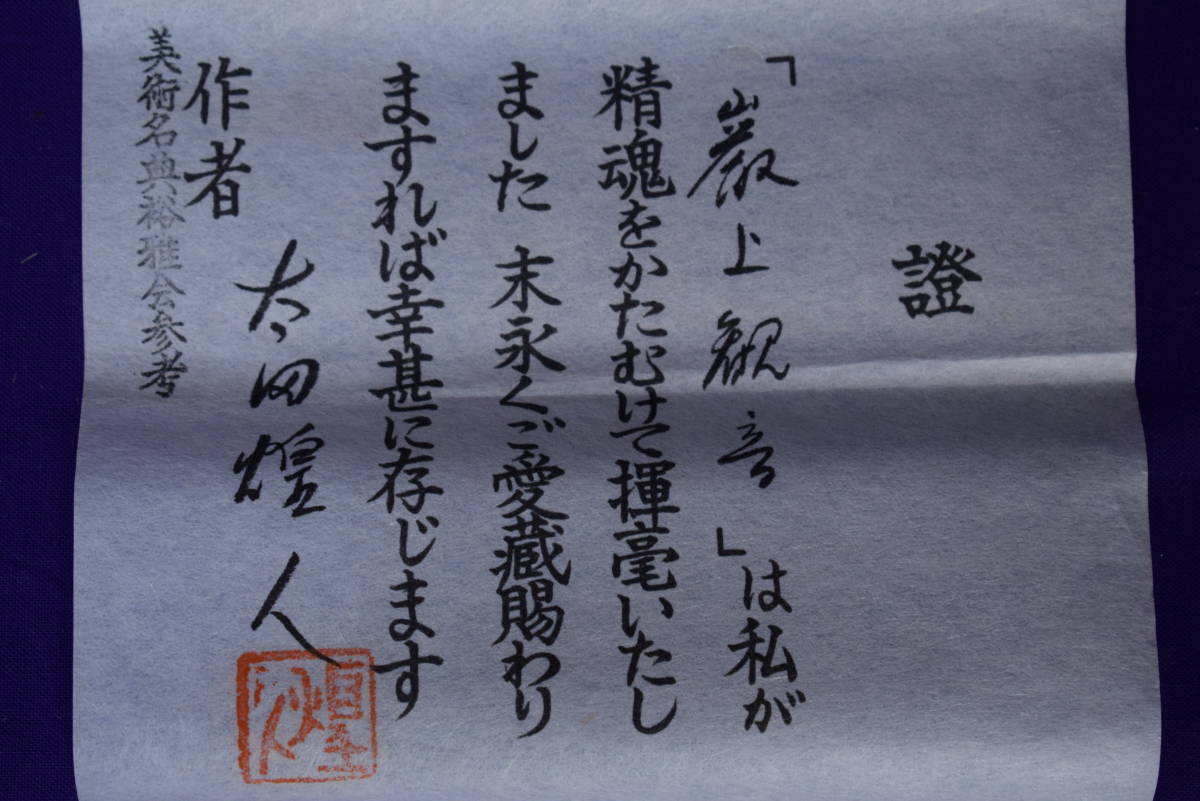 證
「巌上観音」は私が
精魂をかたむけて揮毫いたし
ました 末永くご愛藏賜わり
ますれば幸甚に存じます
作者 太田煌人
美術名典裕雅会参考
煌人